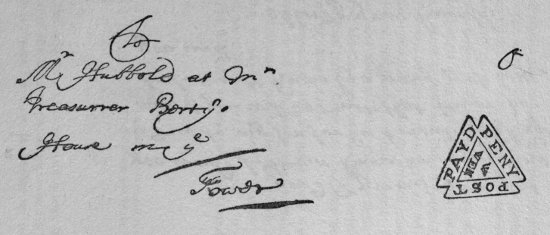 To
Mr Hubbold at Mr
Treasurrer Bertys
House in ye
Tower
PENY POST PAYD